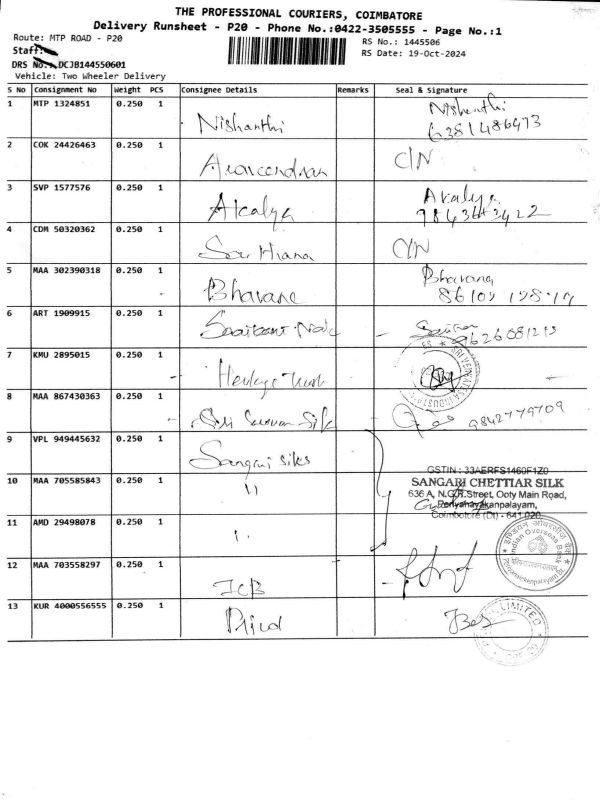 THE PROFESSIONAL COURIERS, COIMBATORE
Delivery Runsheet - P20 - Phone No.:0422-3505555 - Page No.:1
Route: MTP ROAD - P20
RS No.: 1445506
Staff:
RS Date: 19-Oct-2024
DRS No.:DCJB144550601
Vehicle: Two Wheeler Delivery
S No Consignment No Weight PCS Consignee Details Remarks Seal & Signature
1 MTP 1324851 0.250 1 Nishanthi Nishanthi
6381486473
2 COK 24426463 0.250 1 C/N
3 SVP 1577576 0.250 1 Akalya Akalya
4 CDM 50320362 0.250 1 C/N
5 MAA 302390318 0.250 1 Bhavana Bhavana
6 ART 1909915 0.250 1
7 KMU 2895015 0.250 1 Heritage Trust
8 MAA 867430363 0.250 1 Sri Saravan Silk 9842779709
9 VPL 949445632 0.250 1 Sangari silks
GSTIN : 33AERFS1460F1Z0
10 MAA 705585843 0.250 1 11 SANGARI CHETTIAR SILK
636 A, N.G.R.Street, Ooty Main Road,
Periyanayakanpalayam,
Coimbatore (Dt) - 641 020
11 AMD 29498078 0.250 1
Indian Overseas Bank
12 MAA 703558297 0.250 1
13 KUR 4000556555 0.250 1
LIMITED